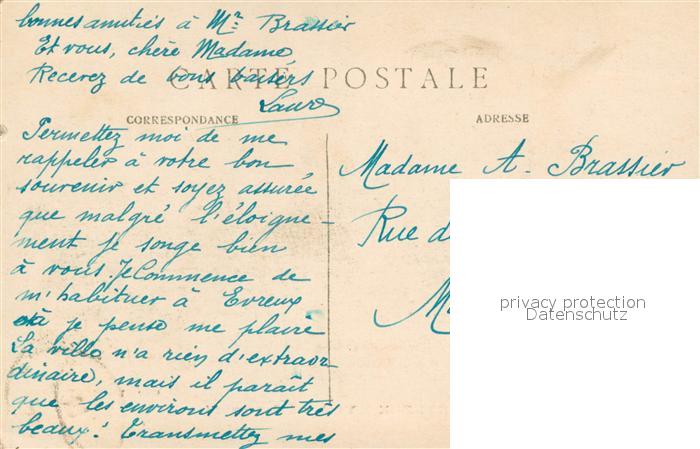 bonnes amitiés à Mr Brassier
Et vous, chère Madame
Recevez de bons baisers
Laure
CARTE POSTALE
CORRESPONDANCE
ADRESSE
Permettez moi de me
rappeler à votre bon
souvenir et soyez assurée
que malgré l'éloigne-
ment je songe bien
à vous. Je Commence de
m'habituer à Evreux
je pense me plaire
La ville n'a rien d'extraor
dinaire, mais il paraît
que les environs sont très
beaux! Transmettez mes
Madame A. Brassier
Rue d
M
privacy protection
Datenschutz